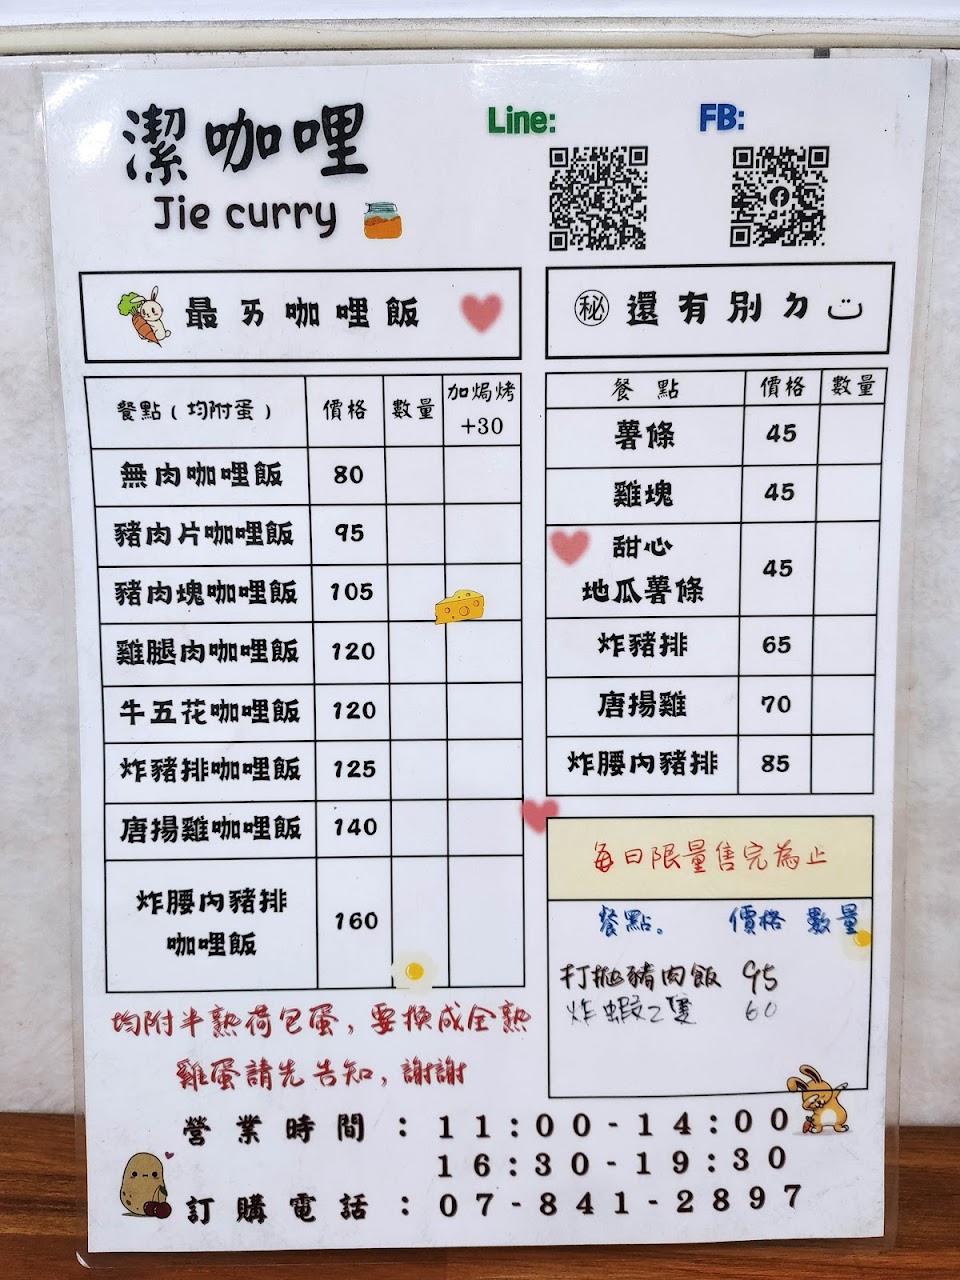 潔咖哩
Jie curry
Line:
FB:
最ㄞ咖哩飯
餐點(均附蛋) 價格 數量 加焗烤+30
無肉咖哩飯 80
豬肉片咖哩飯 95
豬肉塊咖哩飯 105
雞腿肉咖哩飯 120
牛五花咖哩飯 120
炸豬排咖哩飯 125
唐揚雞咖哩飯 140
炸腰內豬排
咖哩飯 160
均附半熟荷包蛋,要換成全熟
雞蛋請先告知,謝謝
㊙還有別ㄉ
餐點 價格 數量
薯條 45
雞塊 45
甜心
地瓜薯條 45
炸豬排 65
唐揚雞 70
炸腰內豬排 85
每日限量售完為止
餐點。 價格 數量
打拋豬肉飯 95
炸蝦2隻 60
營業時間:11:00-14:00
16:30-19:30
訂購電話:07-841-2897